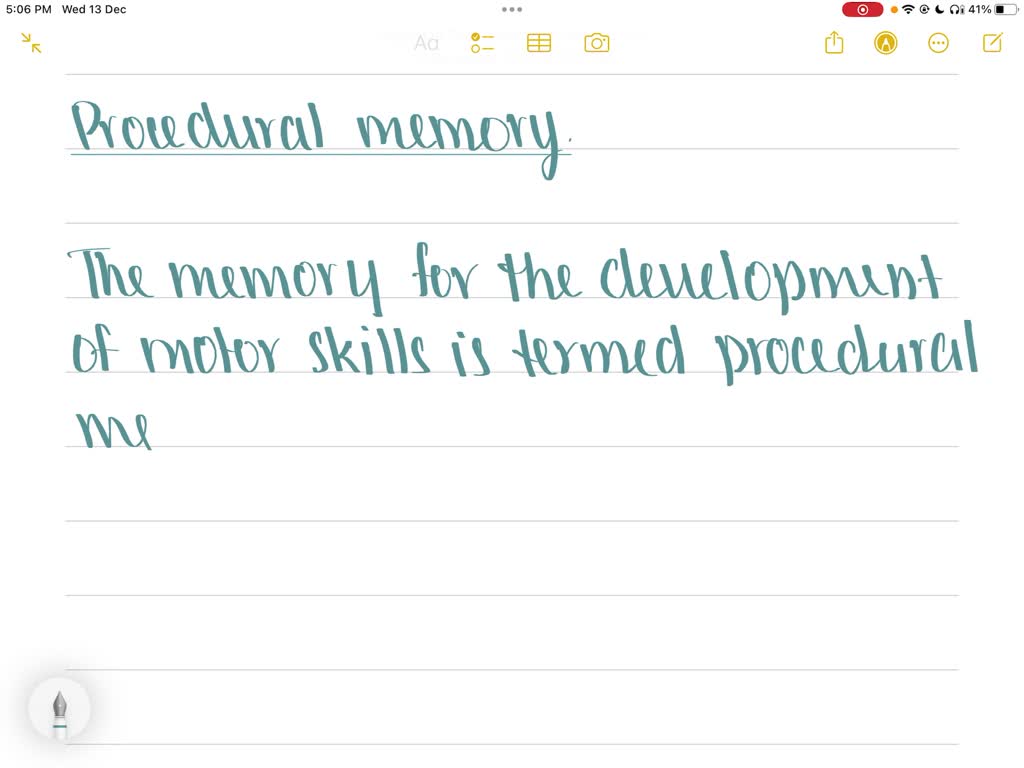 5:06 PM Wed 13 Dec
41%
Aa
Procedural memory.
The memory for the development
of motor skills is termed procedural
me